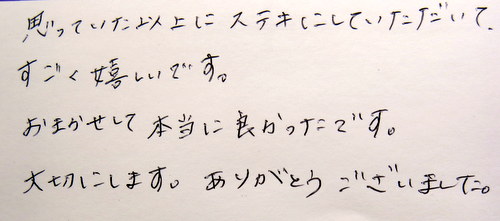 思っていた以上にステキにしていただいて、
すごく嬉しいです。
おまかせして本当に良かったです。
大切にします。ありがとうございました。